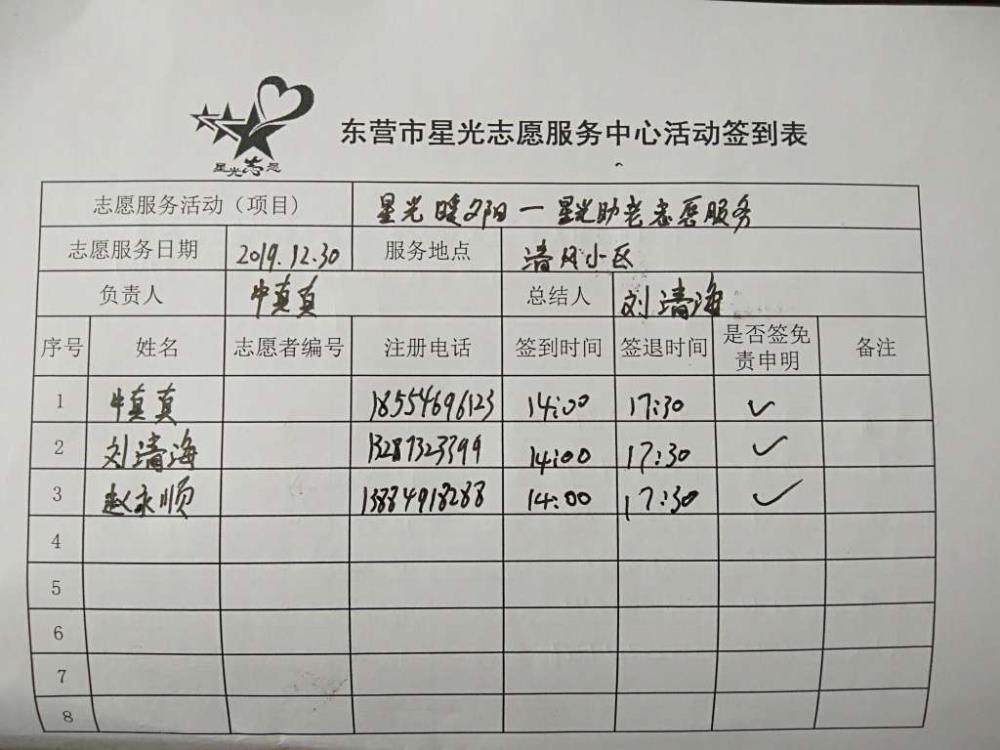 星光志愿
东营市星光志愿服务中心活动签到表
志愿服务活动（项目） 星光暖夕阳一星光助老志愿服务
志愿服务日期 2019.12.30 服务地点 清风小区
负责人 牛真真 总结人 刘清海
序号 姓名 志愿者编号 注册电话 签到时间 签退时间 是否签免责申明 备注
1 牛真真 18554696123 14:00 17:30 ✓
2 刘清海 13287323399 14:00 17:30 ✓
3 赵永顺 13884918288 14:00 17:30 ✓
4
5
6
7
8